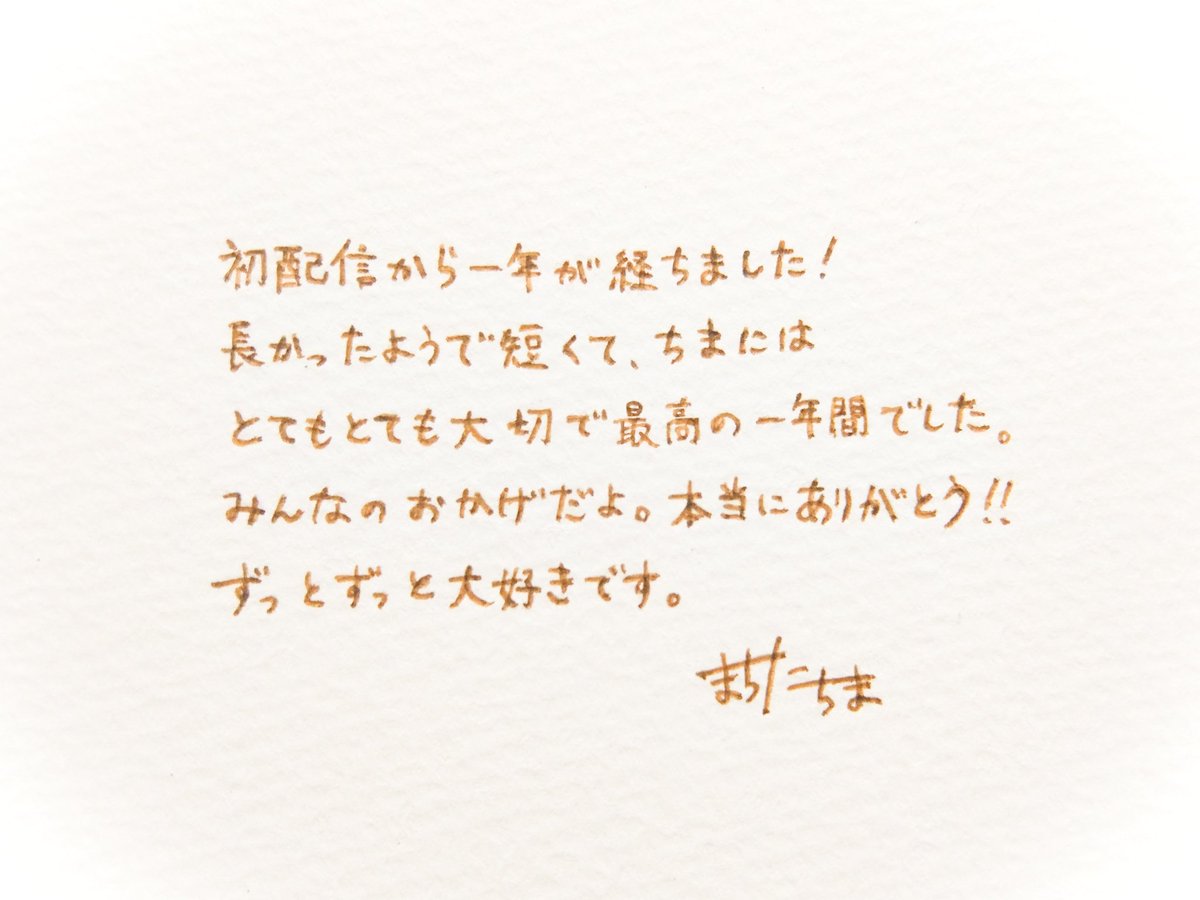 初配信から一年が経ちました!
長かったようで短くて、ちまには
とてもとても大切で最高の一年間でした。
みんなのおかげだよ。本当にありがとう!!
ずっとずっと大好きです。
まちたちま